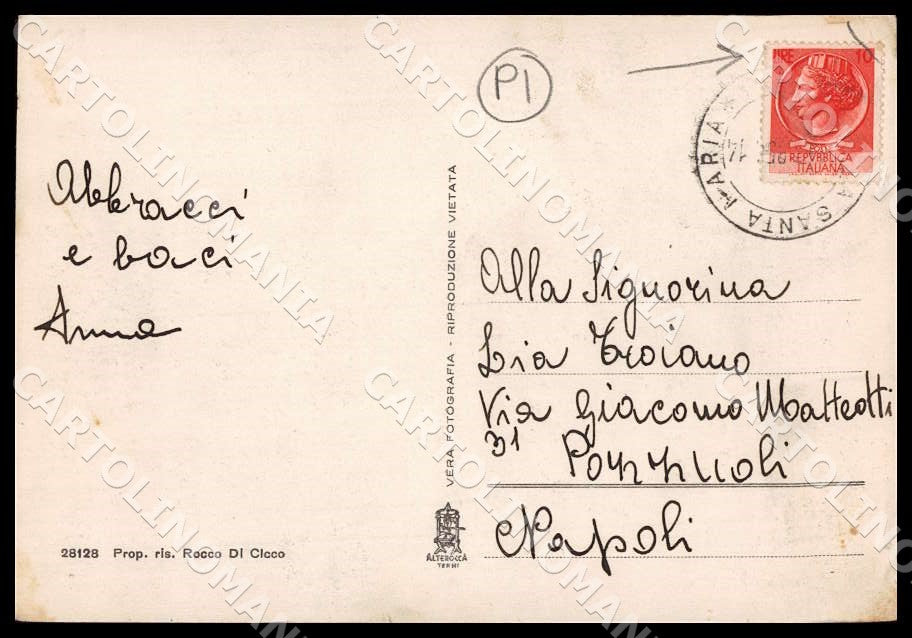 PI
LIRE 10
POSTE
REPVBBLICA
ITALIANA
SANTA MARIA
Abbracci
e baci
Anna
Alla Signorina
Lia Troiano
Via Giacomo Matteotti
31
Pozzuoli
Napoli
VERA FOTOGRAFIA - RIPRODUZIONE VIETATA
ALTEROCCA
TERNI
28128 Prop. ris. Rocco Di Cicco
CARTOLINOMANIA